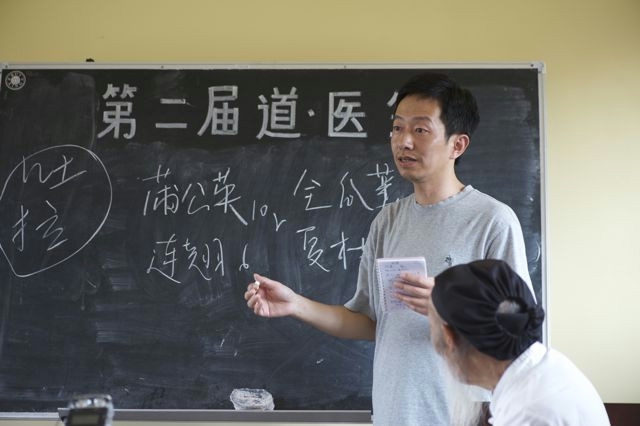 第二届道·医
吐
拉
蒲公英 10 全瓜蒌
连翘 6 夏